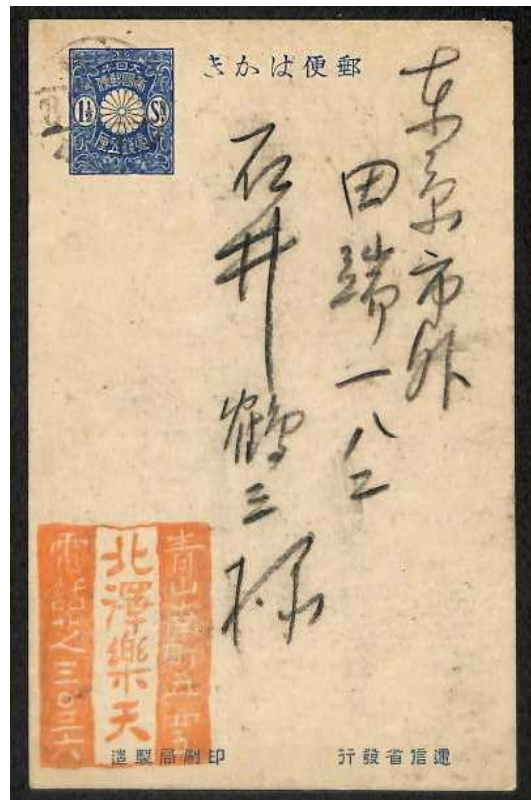 郵便はかき
大日本
帝國郵便
1½ Sn
壹錢五厘
東京市外
田端一八二
石井鶴三様
青山南町五ノ四五
北澤樂天
電話芝三〇三六
遞信省發行
印刷局製造